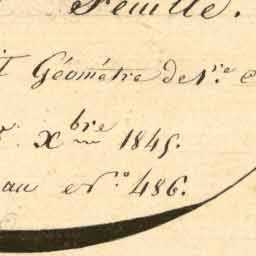 Feuille.
Géomètre de 1.re
Xbre 1845.
au N.o 486.